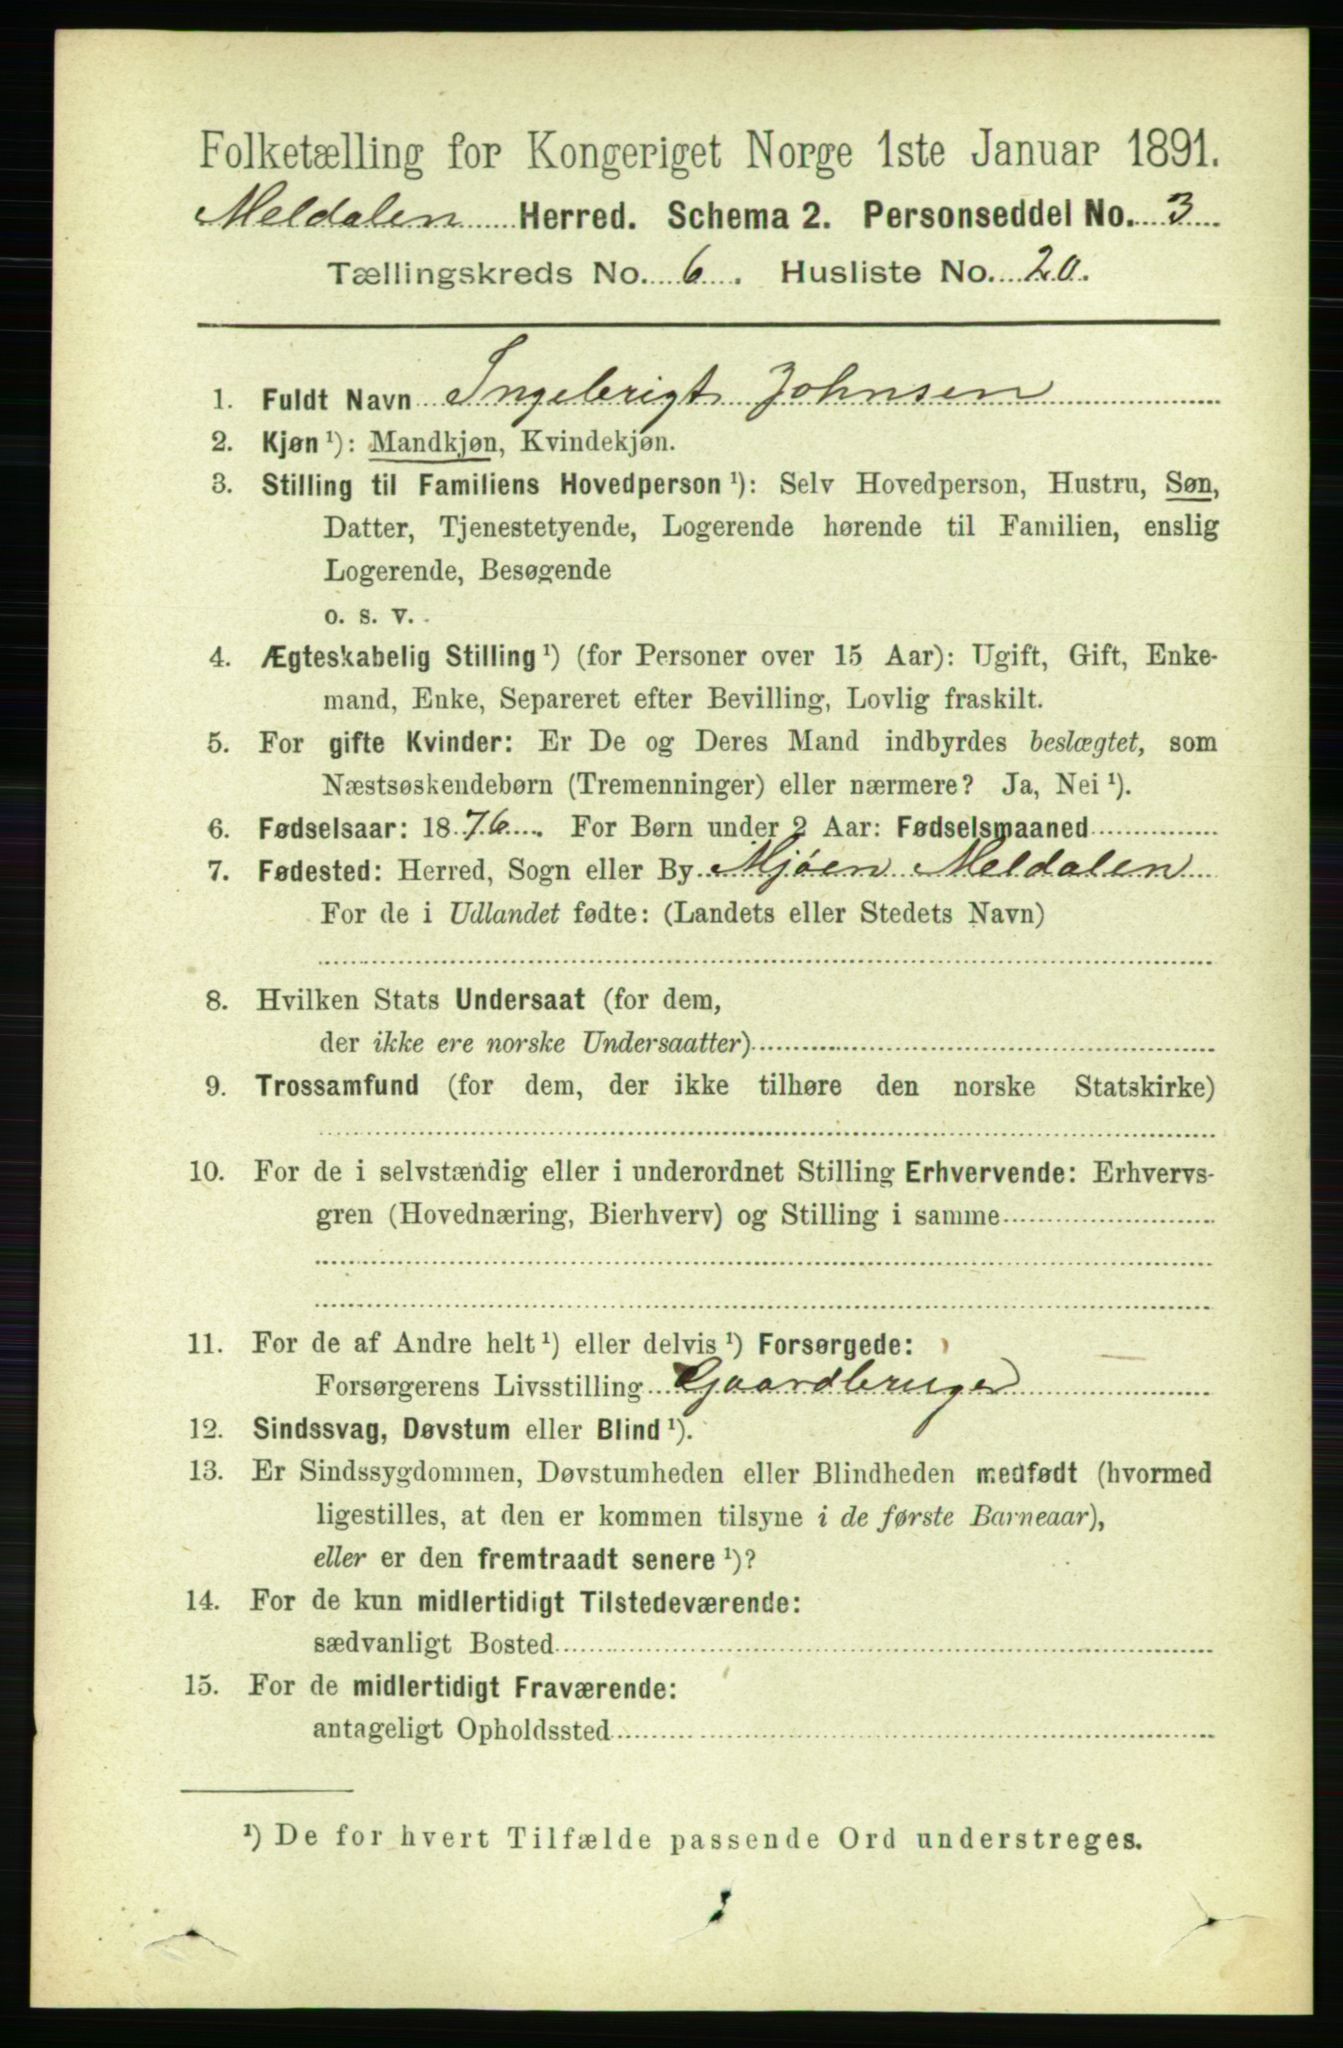 Folketælling for Kongeriget Norge 1ste Januar 1891.
Meldalen Herred. Schema 2. Personseddel No. 3
Tællingskreds No. 6. Husliste No. 20.
1. Fuldt Navn Ingebrigt Johnsen
2. Kjøn ¹): Mandkjøn, Kvindekjøn.
3. Stilling til Familiens Hovedperson ¹): Selv Hovedperson, Hustru, Søn,
Datter, Tjenestetyende, Logerende hørende til Familien, enslig
Logerende, Besøgende
o. s. v.
4. Ægteskabelig Stilling ¹) (for Personer over 15 Aar): Ugift, Gift, Enke-
mand, Enke, Separeret efter Bevilling, Lovlig fraskilt.
5. For gifte Kvinder: Er De og Deres Mand indbyrdes beslægtet, som
Næstsøskendebørn (Tremenninger) eller nærmere? Ja, Nei ¹).
6. Fødselsaar: 1876. For Børn under 2 Aar: Fødselsmaaned
7. Fødested: Herred, Sogn eller By Mjøen Meldalen
For de i Udlandet fødte: (Landets eller Stedets Navn)
8. Hvilken Stats Undersaat (for dem,
der ikke ere norske Undersaatter)
9. Trossamfund (for dem, der ikke tilhøre den norske Statskirke)
10. For de i selvstændig eller i underordnet Stilling Erhvervende: Erhvervs-
gren (Hovednæring, Bierhverv) og Stilling i samme
11. For de af Andre helt ¹) eller delvis ¹) Forsørgede:
Forsørgerens Livsstilling Gaardbruger
12. Sindssvag, Døvstum eller Blind ¹).
13. Er Sindssygdommen, Døvstumheden eller Blindheden medfødt (hvormed
ligestilles, at den er kommen tilsyne i de første Barneaar),
eller er den fremtraadt senere ¹)?
14. For de kun midlertidigt Tilstedeværende:
sædvanligt Bosted
15. For de midlertidigt Fraværende:
antageligt Opholdssted
¹) De for hvert Tilfælde passende Ord understreges.